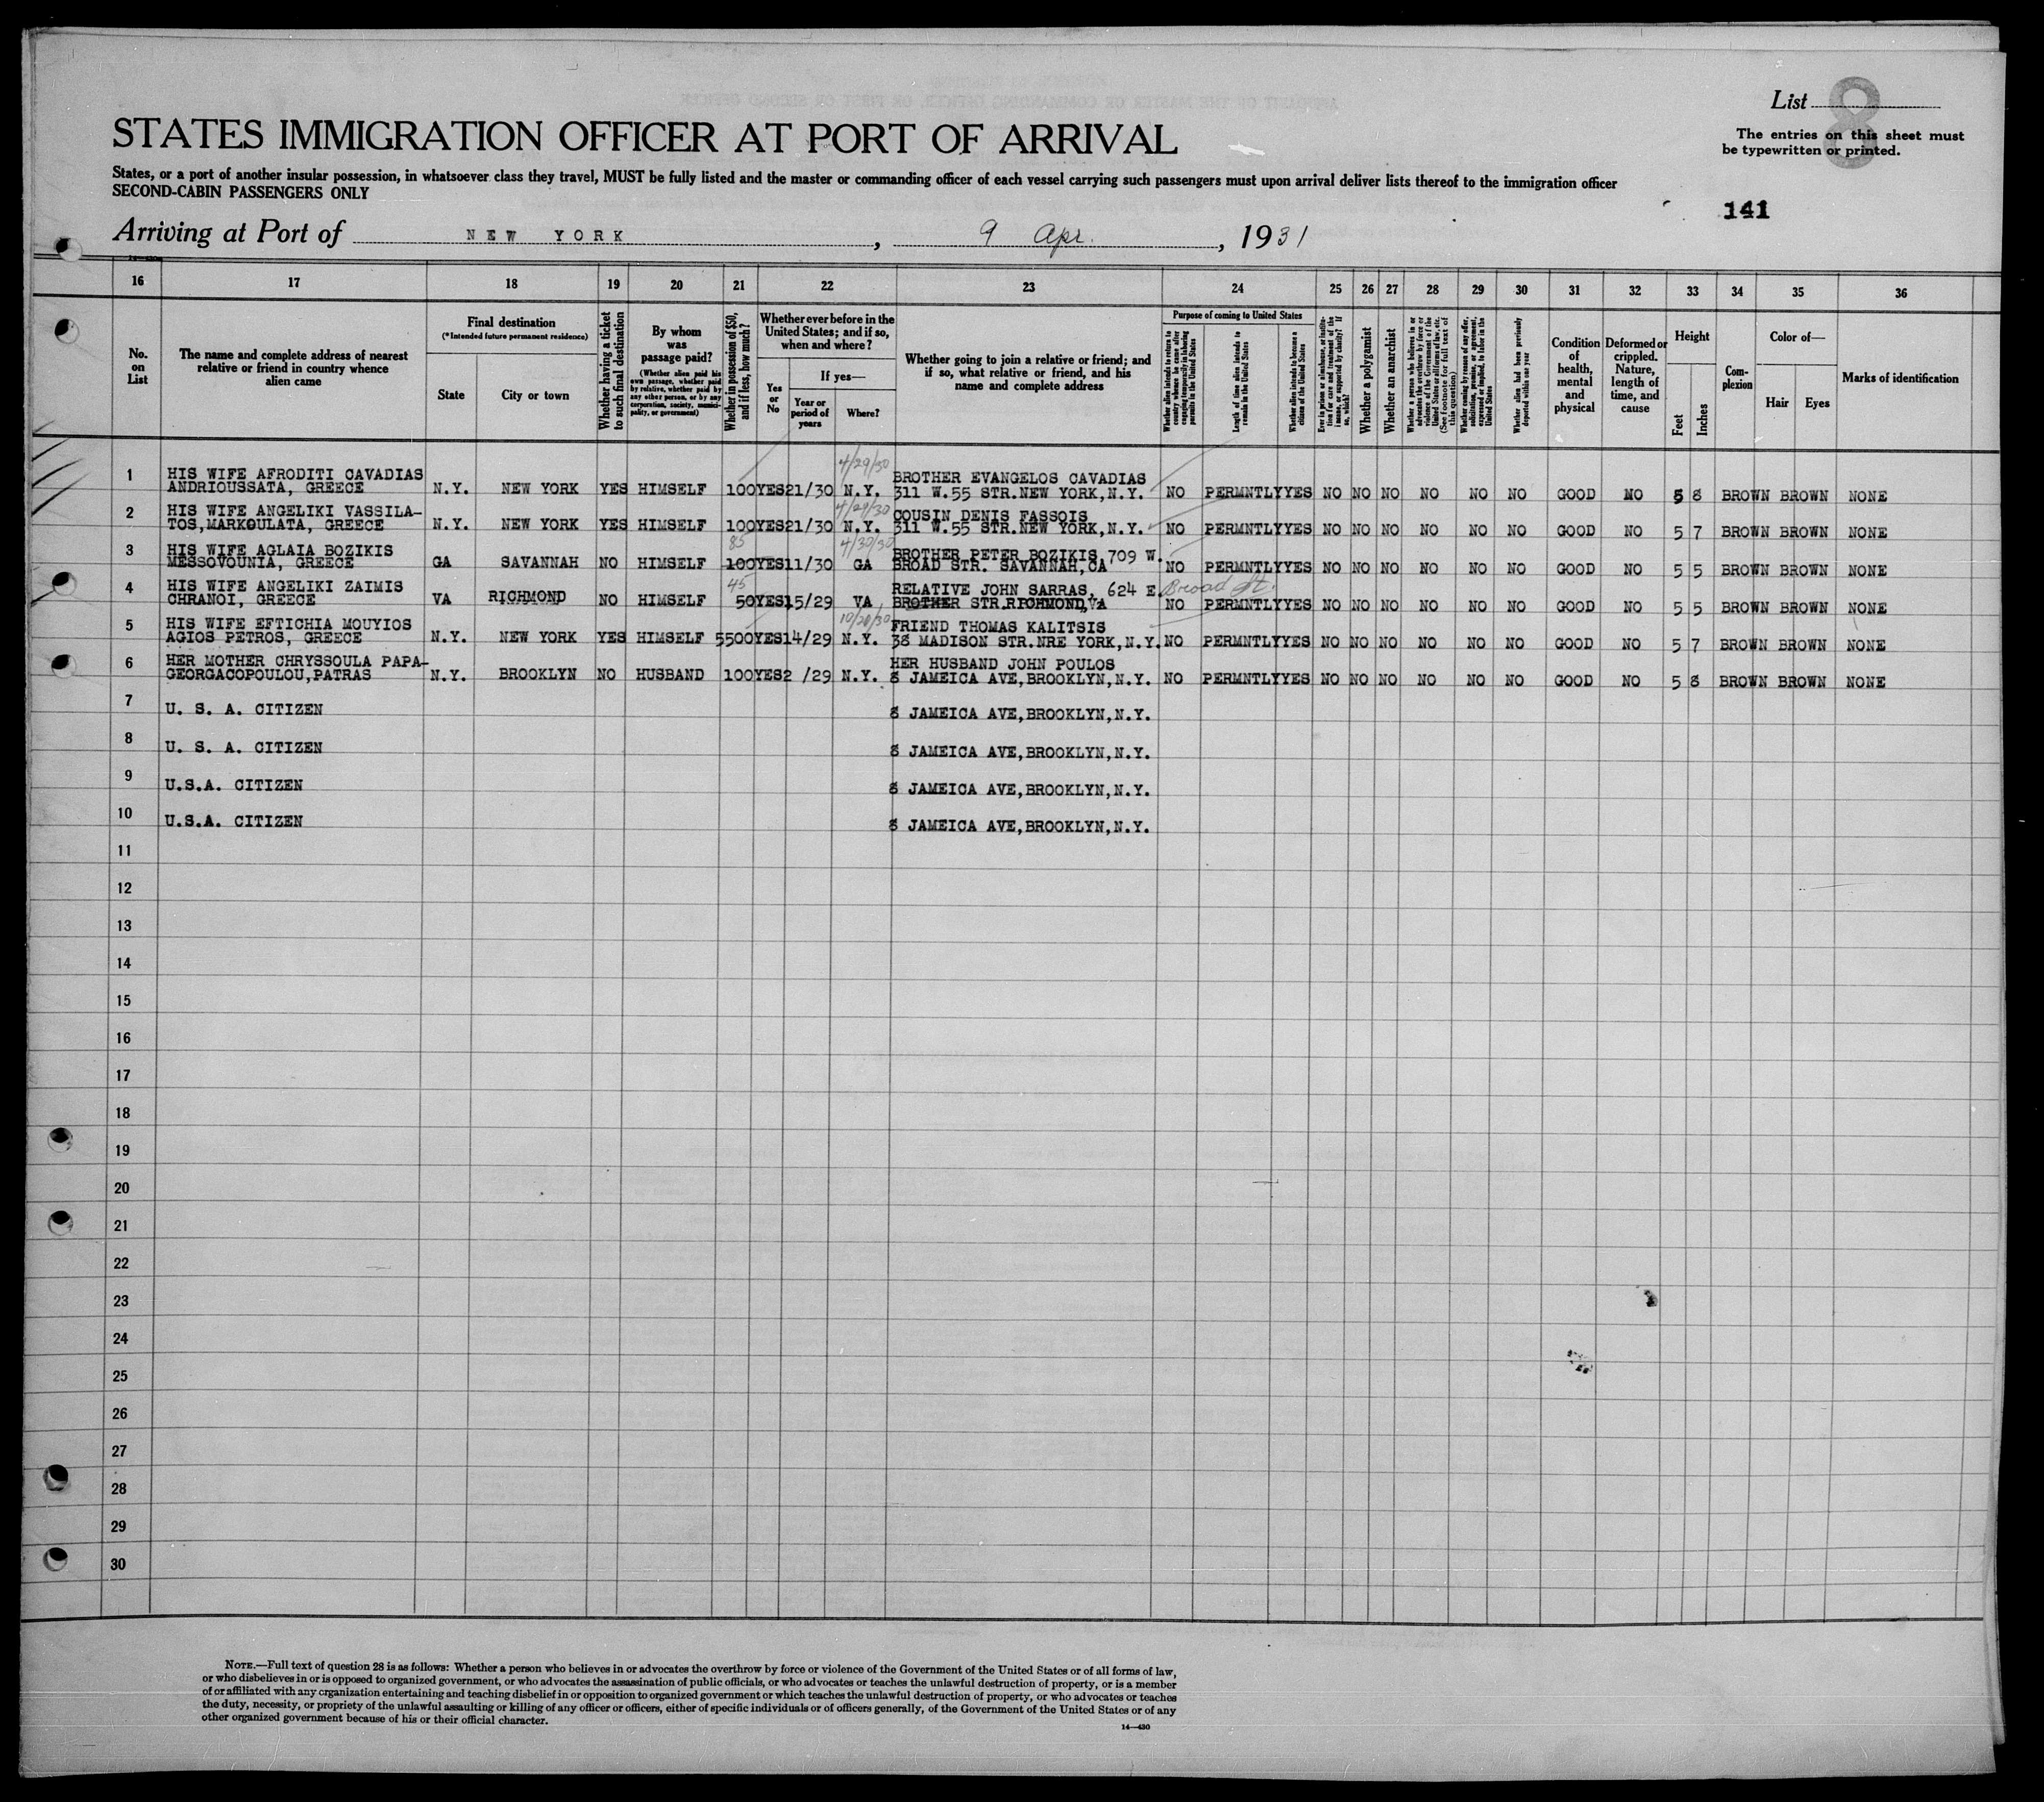 List 8
STATES IMMIGRATION OFFICER AT PORT OF ARRIVAL
The entries on this sheet must
be typewritten or printed.
States, or a port of another insular possession, in whatsoever class they travel, MUST be fully listed and the master or commanding officer of each vessel carrying such passengers must upon arrival deliver lists thereof to the immigration officer
SECOND-CABIN PASSENGERS ONLY
141
Arriving at Port of NEW YORK, 9 Apr., 1931
16 17 18 19 20 21 22 23 24 25 26 27 28 29 30 31 32 33 34 35 36
No.
on
List
The name and complete address of nearest
relative or friend in country whence
alien came
Final destination
(*Intended future permanent residence)
State
City or town
Whether having a ticket
to such final destination
By whom
was
passage paid?
(Whether alien paid his
own passage, whether paid
by relative, whether paid by
any other person, or by any
corporation, society, munici-
pality, or government)
Whether in possession of $50,
and if less, how much?
Whether ever before in the
United States; and if so,
when and where?
Yes
or
No
If yes—
Year or
period of
years
Where?
Whether going to join a relative or friend; and
if so, what relative or friend, and his
name and complete address
Purpose of coming to United States
Whether alien intends to return to
country whence he came after
engaging temporarily in laboring
pursuits in the United States
Length of time alien intends to
remain in the United States
Whether alien intends to become a
citizen of the United States
Ever in prison or almshouse, or institu-
tion for care and treatment of the
insane, or supported by charity? If
so, which?
Whether a polygamist
Whether an anarchist
Whether a person who believes in or
advocates the overthrow by force or
violence of the Government of the
United States or all forms of law, etc.
(See footnote for full text of
this question)
Whether coming by reason of any offer,
solicitation, promise, or agreement,
expressed or implied, to labor in the
United States
Whether alien had been previously
deported within one year
Condition
of
health,
mental
and
physical
Deformed or
crippled.
Nature,
length of
time, and
cause
Height
Feet
Inches
Com-
plexion
Color of—
Hair
Eyes
Marks of identification
4/29/30
1 HIS WIFE AFRODITI CAVADIAS BROTHER EVANGELOS CAVADIAS
ANDRIOUSSATA, GREECE N.Y. NEW YORK YES HIMSELF 100 YES 21/30 N.Y. 311 W.55 STR.NEW YORK,N.Y. NO PERMNTLY YES NO NO NO NO NO NO GOOD NO 5 8 BROWN BROWN NONE
4/29/30
2 HIS WIFE ANGELIKI VASSILA- COUSIN DENIS FASSOIS
TOS,MARKOULATA, GREECE N.Y. NEW YORK YES HIMSELF 100 YES 21/30 N.Y. 311 W.55 STR.NEW YORK,N.Y. NO PERMNTLY YES NO NO NO NO NO NO GOOD NO 5 7 BROWN BROWN NONE
85 4/30/30
3 HIS WIFE AGLAIA BOZIKIS BROTHER PETER BOZIKIS, 709 W.
MESSOVOUNIA, GREECE GA SAVANNAH NO HIMSELF 100 YES 11/30 GA BROAD STR. SAVANNAH,GA NO PERMNTLY YES NO NO NO NO NO NO GOOD NO 5 5 BROWN BROWN NONE
45
4 HIS WIFE ANGELIKI ZAIMIS RELATIVE JOHN SARRAS, 624 E. Broad St.
CHRANOI, GREECE VA RICHMOND NO HIMSELF 50 YES 15/29 VA BROTHER STR.RICHMOND,VA NO PERMNTLY YES NO NO NO NO NO NO GOOD NO 5 5 BROWN BROWN NONE
5 HIS WIFE EFTICHIA MOUYIOS FRIEND THOMAS KALITSIS
AGIOS PETROS, GREECE N.Y. NEW YORK YES HIMSELF 5500 YES 14/29 N.Y. 38 MADISON STR.NRE YORK,N.Y. NO PERMNTLY YES NO NO NO NO NO NO GOOD NO 5 7 BROWN BROWN NONE
6 HER MOTHER CHRYSSOULA PAPA- HER HUSBAND JOHN POULOS
GEORGACOPOULOU,PATRAS N.Y. BROOKLYN NO HUSBAND 100 YES 2 /29 N.Y. 8 JAMEICA AVE,BROOKLYN,N.Y. NO PERMNTLY YES NO NO NO NO NO NO GOOD NO 5 8 BROWN BROWN NONE
7 U. S. A. CITIZEN 8 JAMEICA AVE,BROOKLYN,N.Y.
8 U. S. A. CITIZEN 8 JAMEICA AVE,BROOKLYN,N.Y.
9 U.S.A. CITIZEN 8 JAMEICA AVE,BROOKLYN,N.Y.
10 U.S.A. CITIZEN 8 JAMEICA AVE,BROOKLYN,N.Y.
11
12
13
14
15
16
17
18
19
20
21
22
23
24
25
26
27
28
29
30
NOTE.—Full text of question 28 is as follows: Whether a person who believes in or advocates the overthrow by force or violence of the Government of the United States or of all forms of law,
or who disbelieves in or is opposed to organized government, or who advocates the assassination of public officials, or who advocates or teaches the unlawful destruction of property, or is a member
of or affiliated with any organization entertaining and teaching disbelief in or opposition to organized government or which teaches the unlawful destruction of property, or who advocates or teaches
the duty, necessity, or propriety of the unlawful assaulting or killing of any officer or officers, either of specific individuals or of officers generally, of the Government of the United States or of any
other organized government because of his or their official character.
14—430